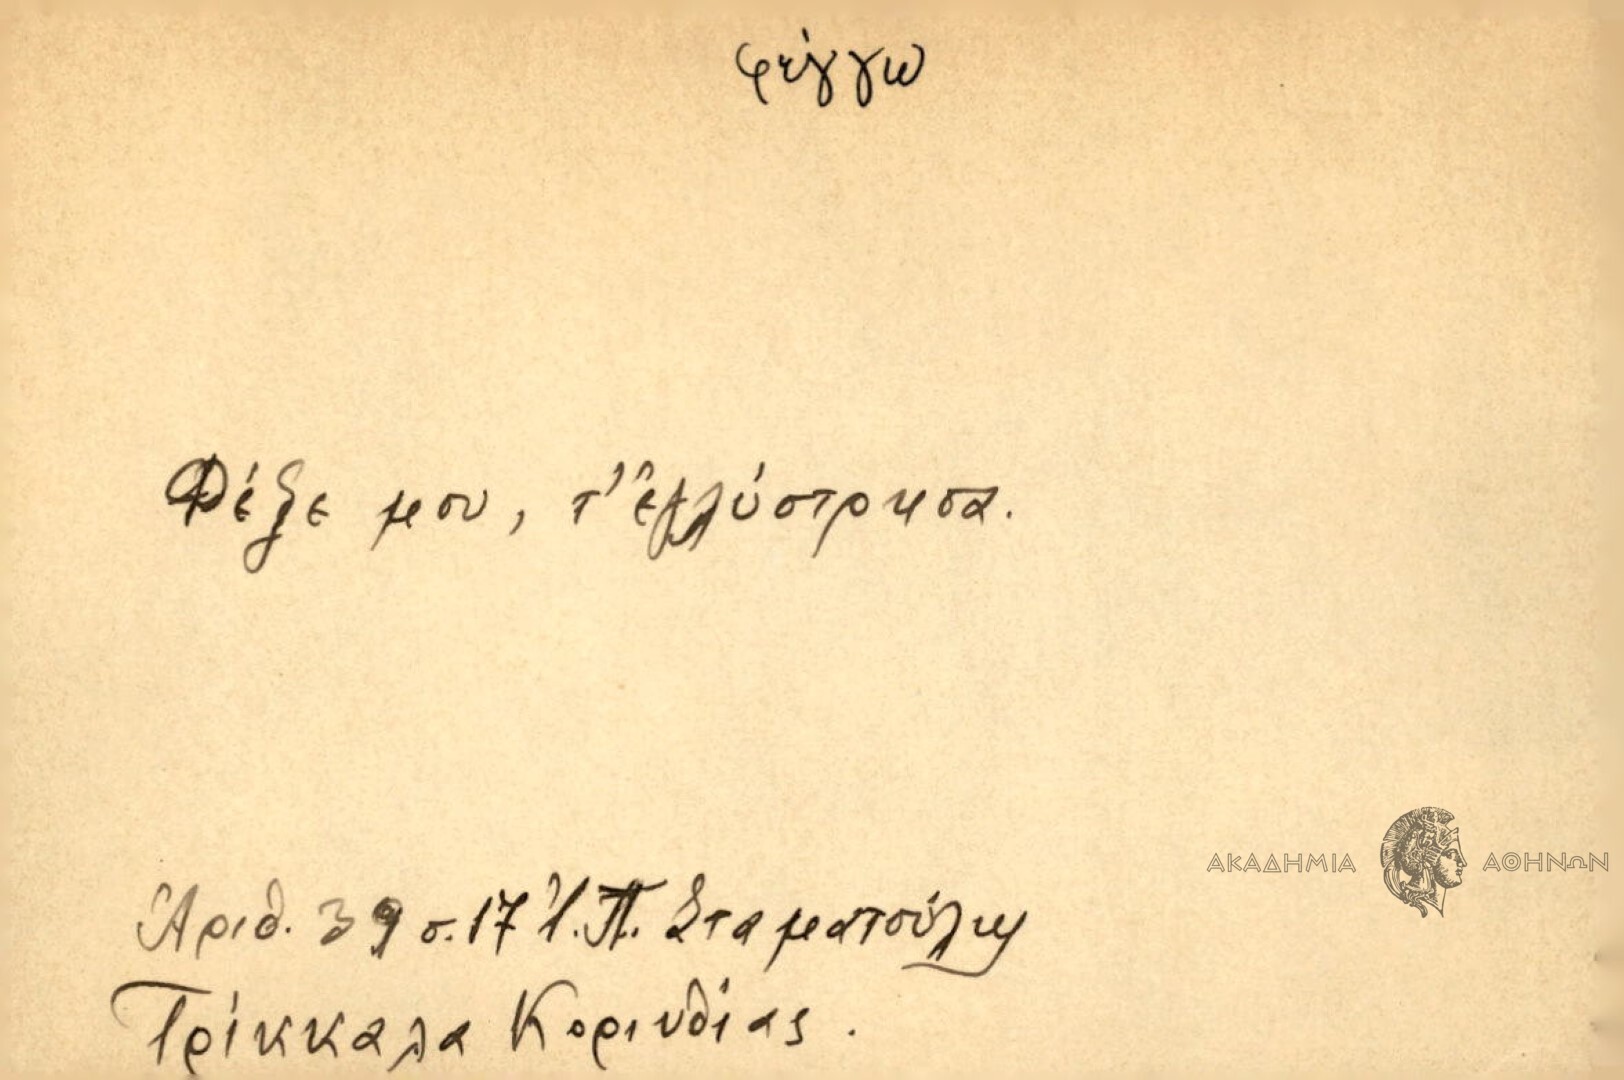 φέγγω
Φέξε μου, τ' ἐγλύστρησα.
ΑΚΑΔΗΜΙΑ ΑΘΗΝΩΝ
Ἀριθ. 39 σ. 17 Ἰ. Π. Σταματούλης
Τρίκκαλα Κορινθίας.